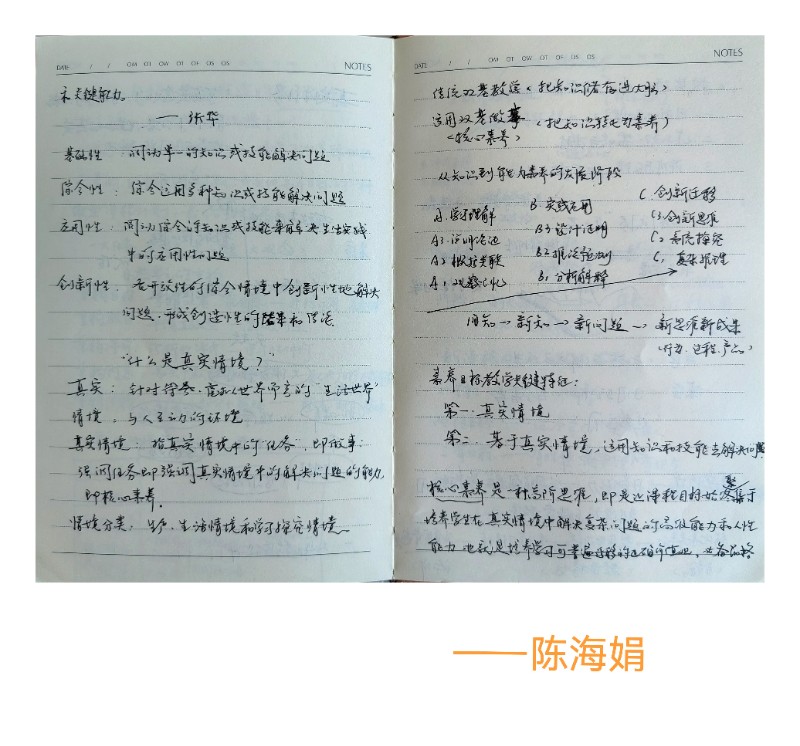 DATE / / OM OT OW OT OF OS OS NOTES
关键能力。
——张华
基础性：调动单一的知识或技能解决问题
综合性：综合运用多种知识或技能解决问题
应用性：调动综合的知识或技能来解决生活实践
中的应用性问题
创新性：在开放性的综合情境中创新性地解决
问题，形成创造性的结果和结论
“什么是真实情境？”
真实：针对 世界 的“生活世界”
情境：与人互动的环境
真实情境：指真实情境中的“任务”，即做事
强调任务即强调真实情境中的解决问题的能力
即核心素养。
情境分类：生产、生活情境和学习探究情境
DATE / / OM OT OW OT OF OS OS NOTES
传统双基教学（把知识储存进大脑）
运用双基做事（把知识转化为素养）
（核心素养）
从知识到能力素养的发展阶段
A 学习理解 B 实践应用 C 创新迁移
A3 说明论证 B3 设计证明 C3 创新思维
A2 概括关联 B2 推论预测 C2 系统探究
A1 观察记忆 B1 分析解释 C1 复杂推理
旧知→新知→新问题→新思维新成果
（行为、过程、产品）
素养目标教学关键特征：
第一：真实情境
第二：基于真实情境，运用知识和技能去解决问题
核心素养是一种高阶思维，即是这课程目标始终聚集于
培养学生在真实情境中解决复杂问题的高级能力和人性
能力 也就是培养学习可普遍迁移的 必备品格
——陈海娟